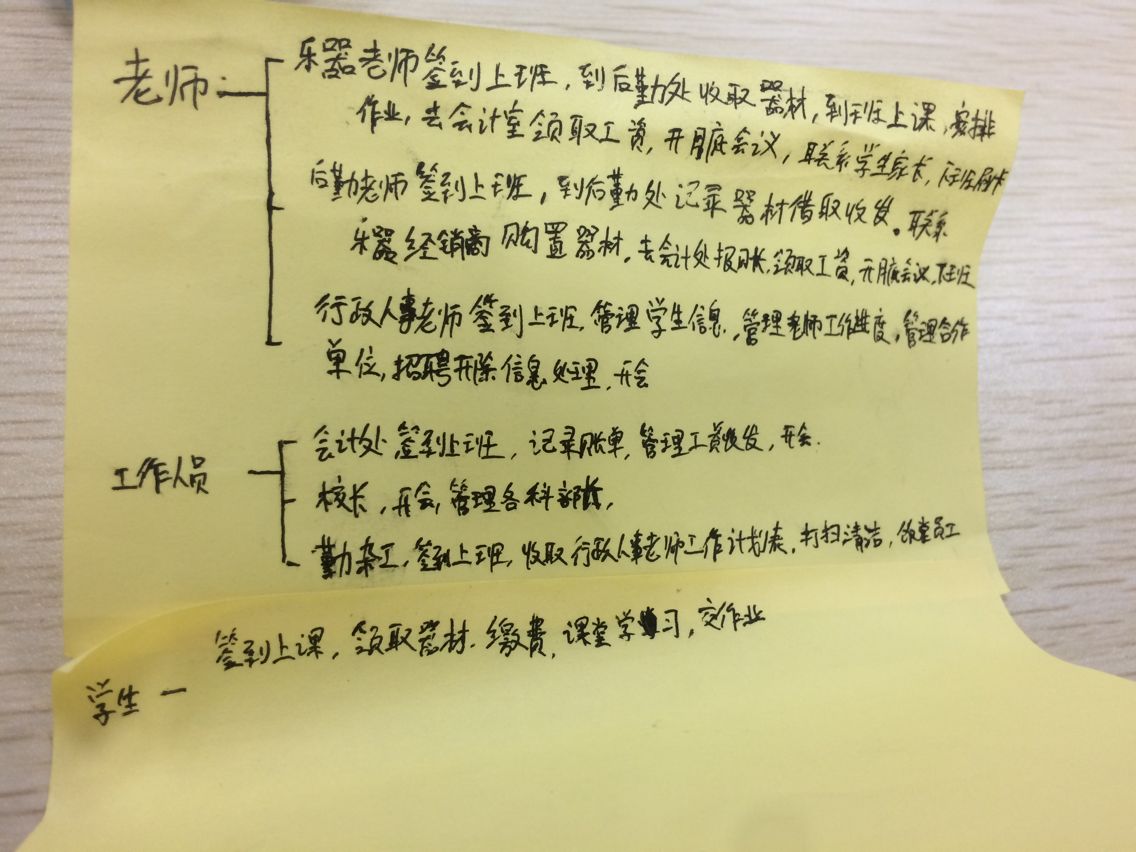 老师:
乐器老师签到上班，到后勤处收取器材，到班上课，安排
作业，去会计室领取工资，开月底会议，联系学生家长，下班刷卡
后勤老师签到上班，到后勤处记录器材借取收发。联系
乐器经销商购置器材，去会计处报账，领取工资，开月底会议，下班
行政人事老师签到上班，管理学生信息，管理老师工作进度，管理合作
单位，招聘开除信息处理，开会
工作人员
会计处，签到上班，记录账单，管理工资收发，开会.
校长，开会，管理各科部长，
勤杂工，签到上班，收取行政人事老师工作计划表，打扫清洁，员工
签到上课，领取器材.缴费，课堂学习，交作业
学生 —